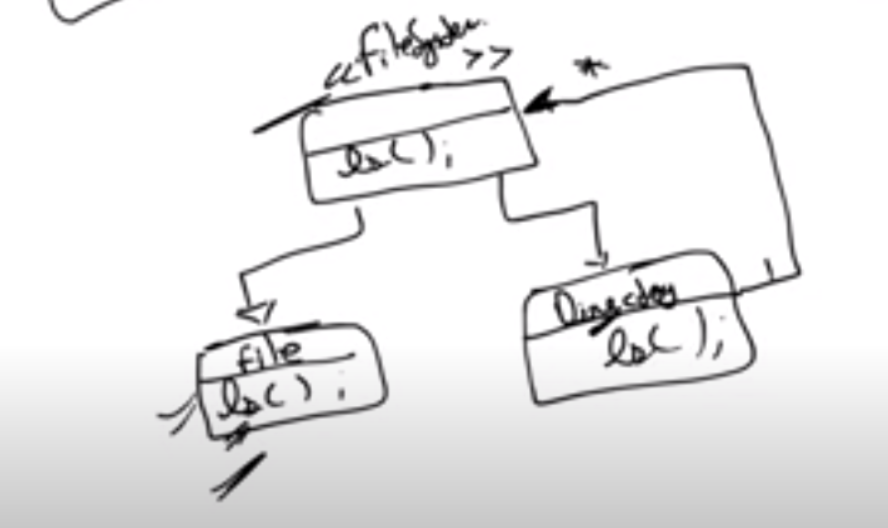 <<FileSystem>>
*
ls();
1
File
ls();
Directory
ls();